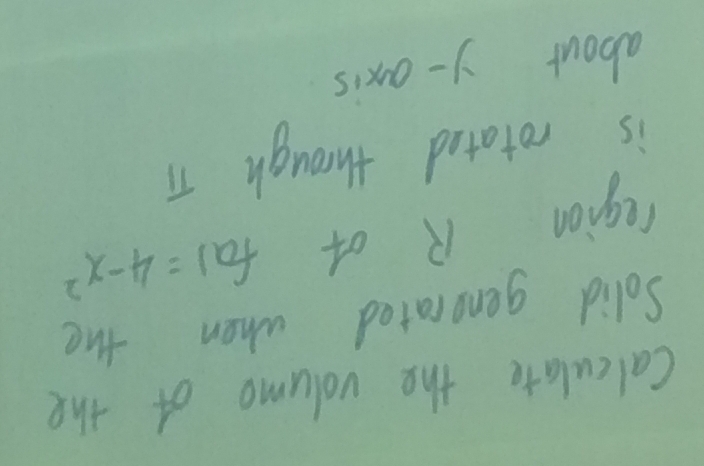 Calculate the volume of the
Solid generated when the
region R of f(x) = 4-x²
is rotated through π
about y-axis